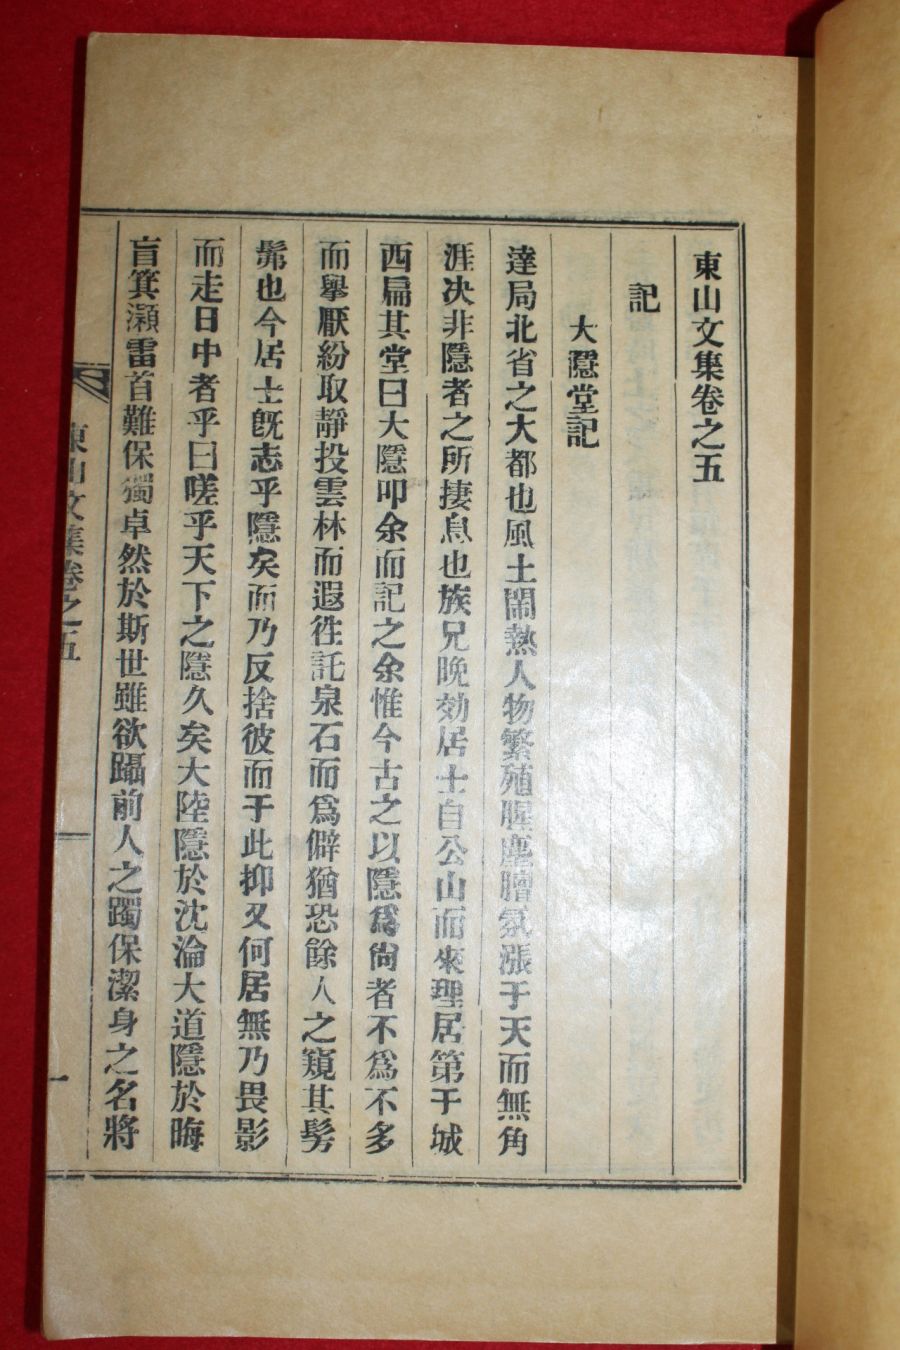 東山文集卷之五
記
大隱堂記
達局北省之大都也風土鬧熱人物繁殖腥塵膻氛漲于天而無角
涯决非隱者之所捿息也族兄晩効居士自公山而來理居第于城
西扁其堂曰大隱叩余而記之余惟今古之以隱爲尙者不爲不多
而擧厭紛取靜投雲林而遐徃託泉石而爲僻猶恐餘人之窺其髣
髴也今居士旣志乎隱矣而乃反捨彼而于此抑又何居無乃畏影
而走日中者乎曰嗟乎天下之隱久矣大陸隱於沈淪大道隱於晦
盲箕瀕雷首難保獨卓然於斯世雖欲躡前人之躅保潔身之名將
東山文集卷之五
一